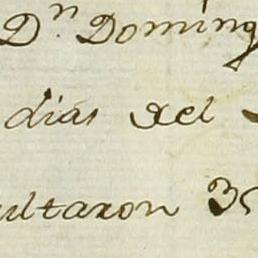 Dn Doming
dias del
ultaron 35